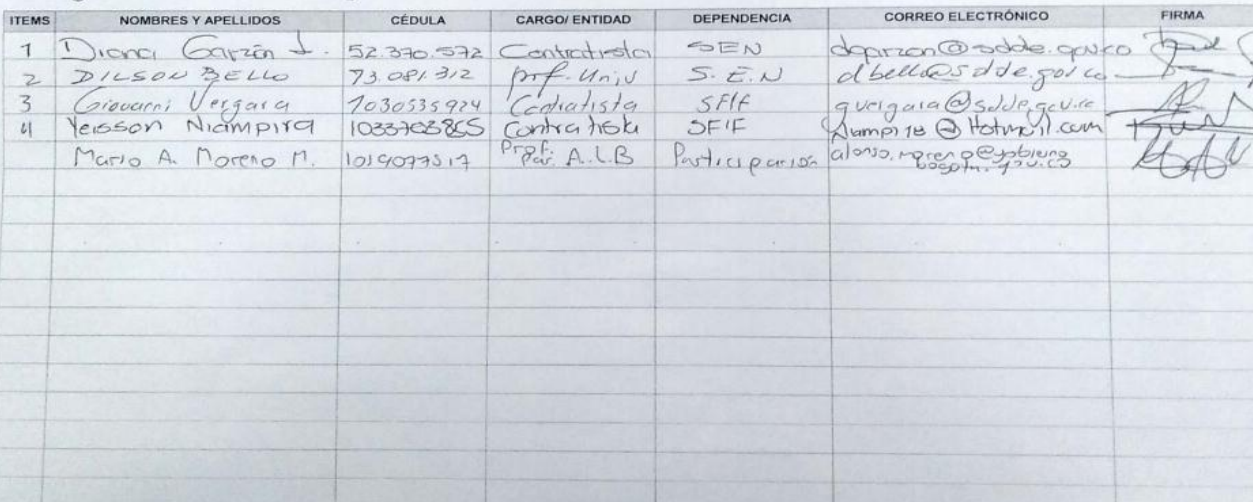 ITEMS NOMBRES Y APELLIDOS CÉDULA CARGO/ ENTIDAD DEPENDENCIA CORREO ELECTRÓNICO FIRMA
1 Diana Garzón L. 52.370.572 Contratista SEN dgarzon@sdde.gov.co
2 DILSON BELLO 73.081.312 prof. Univ S.E.N dbello@sdde.gov.co
3 Giovanni Vergara 1030535924 Contratista SFIF gvergara@sdde.gov.co
4 Yeisson Niampira 1033703855 Contratista SFIF @Hotmail.com
Mario A. Moreno M. 1019077517 Prof. A.L.B Participación alonso.moreno@gobierno
bogota.gov.co